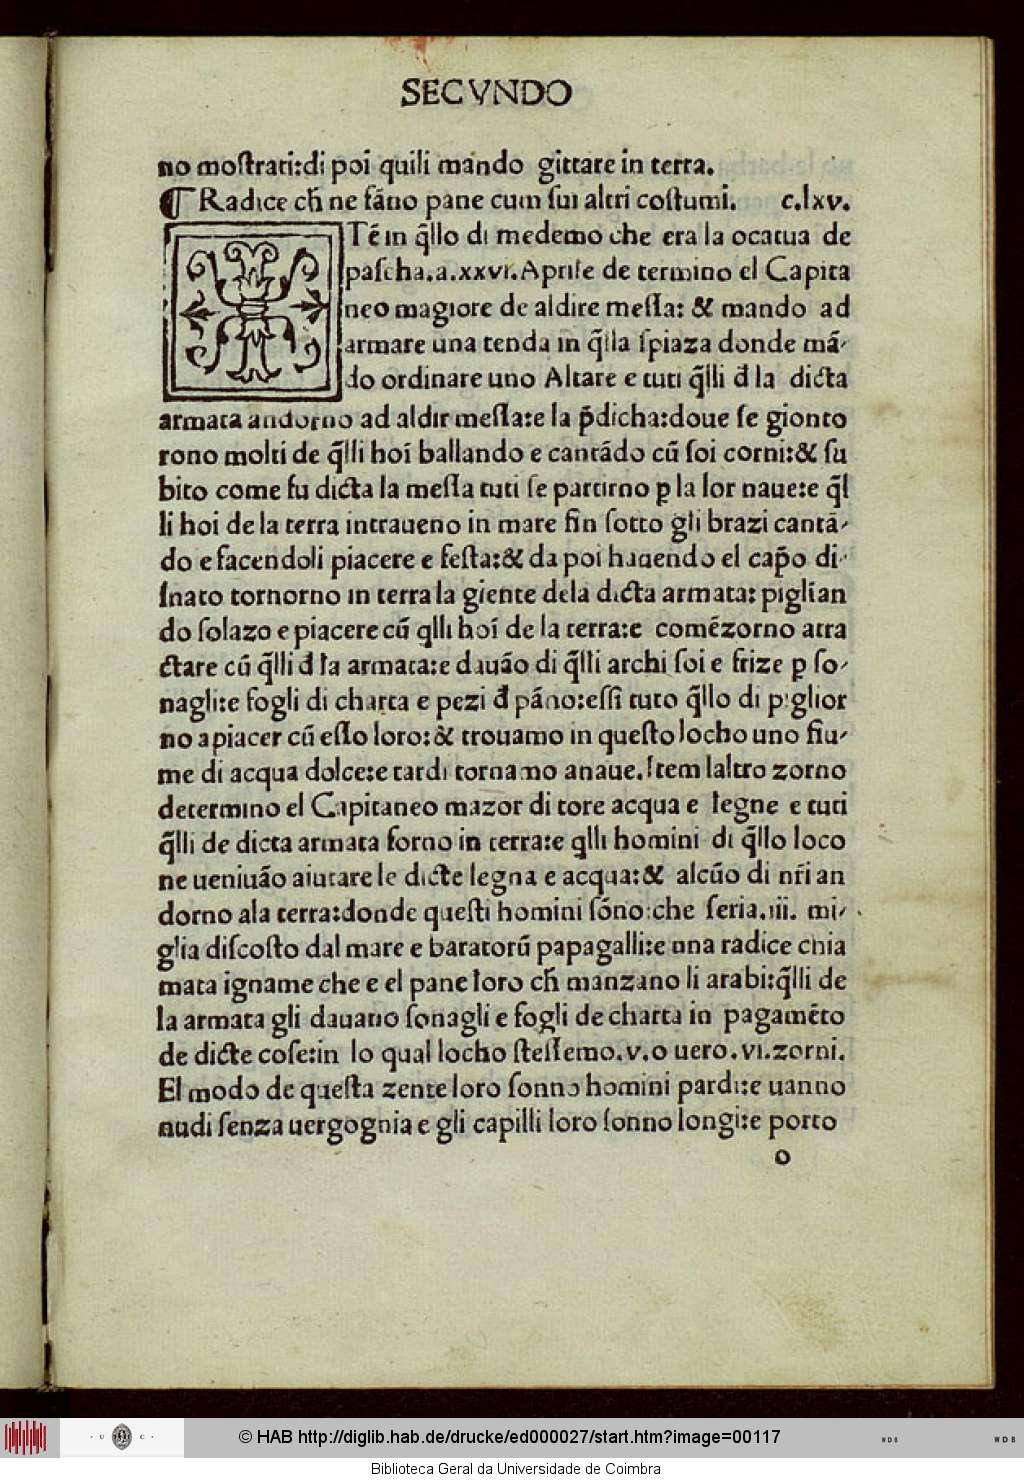 SECVNDO
no moſtrati:di poi quili mando gittare in terra.
¶ Radice ch̄ ne fāno pane cum ſui altri coſtumi. c.lxv.
ITē in q̄llo di medemo che era la octaua de
paſcha.a.xxvi.Aprile de termino el Capita
neo magiore de aldire meſſa: & mando ad
armare una tenda in q̄lla ſpiaza donde mā-
do ordinare uno Altare e tuti q̄lli đ la dicta
armata andorno ad aldir meſſa:e la p̄dicha:doue ſe gionto
rono molti de q̄lli hoī ballando e cantādo cū ſoi corni:& ſu
bito come fu dicta la meſſa tuti ſe partirno ꝑ la lor naue:e q̄l
li hoi de la terra intraueno in mare fin ſotto gli brazi cantā-
do e facendoli piacere e feſta:& da poi hauendo el cap̄o di-
ſnato tornorno in terra la giente dela dicta armata: piglian
do ſolazo e piacere cū q̄lli hoī de la terra:e comēzorno atra
ctare cū q̄lli đ la armata:e dauāo di q̄lli archi ſoi e frize ꝑ ſo-
nagli:e fogli di charta e pezi đ pāno:eſſi tuto q̄llo di piglior
no apiacer cū eſſo loro:& trouamo in queſto locho uno fiu-
me di acqua dolce:e tardi tornamo anaue.Item laltro zorno
determino el Capitaneo mazor di tore acqua e legne e tuti
q̄lli de dicta armata forno in terra:e q̄lli homini di q̄llo loco
ne ueniuāo aiutare le dicte legna e acqua:& alcūo di nr̄i an
dorno ala terra:donde queſti homini ſōno:che ſeria.iii. mi-
glia diſcoſto dal mare e baratorū papagalli:e una radice chia
mata igname che e el pane loro ch̄ manzano li arabi:q̄lli de
la armata gli dauano ſonagli e fogli de charta in pagamēto
de dicte coſe:in lo qual locho ſteſſemo.v.o uero.vi.zorni.
El modo de queſta zente loro ſonno homini pardi:e uanno
nudi ſenza uergognia e gli capilli loro ſonno longi:e porto
o
© HAB http://diglib.hab.de/drucke/ed000027/start.htm?image=00117
· U C ·
WDB
WDB
Biblioteca Geral da Universidade de Coimbra